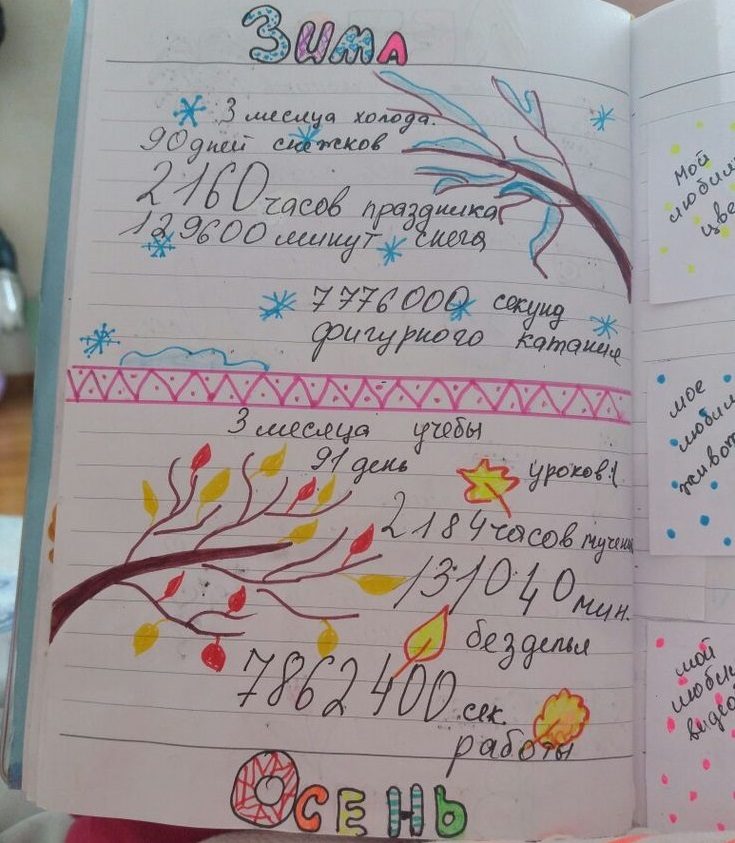 Зима
3 месяца холода.
90 дней снежков
2160 часов праздника
129600 минут снега
7776000 секунд
фигурного катания
3 месяца учебы
91 день уроков :(
2184 часов мучени
131040 мин.
безделья
7862400 сек.
работы
Осень
Мой
любим
цве
мое
любим
живот
мой
люби
видео